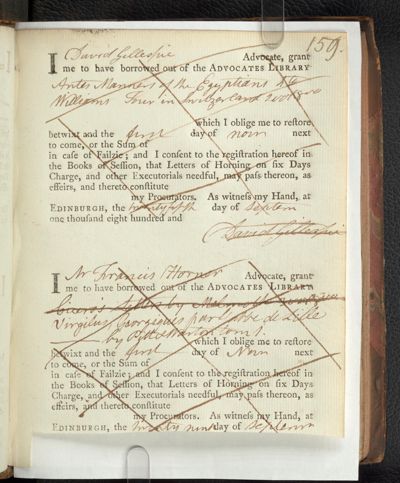 159.
I David Gillespie Advocate, grant
me to have borrowed out of the ADVOCATES LIBRARY
Antes Manners of the Egyptians 4to
Williams Tour in Switzerland 2 vols 8vo
which I oblige me to reſtore
betwixt and the first day of Novr next
to come, or the Sum of
in caſe of Failzie; and I conſent to the regiſtration hereof in
the Books of Seſſion, that Letters of Horning on ſix Days
Charge, and other Executorials needful, may paſs thereon, as
effeirs, and thereto conſtitute
my Procurators. As witneſs my Hand, at
EDINBURGH, the twenty fifth day of Septem
one thouſand eight hundred and
David Gillespie
I Mr Francis Horner Advocate, grant
me to have borrowed out of the ADVOCATES LIBRARY
Cicero's Letters by Melmoth
Virgilius Georgiques par l'abbe de Lille
by tom 1.
which I oblige me to reſtore
betwixt and the first day of Novr next
to come, or the Sum of
in caſe of Failzie; and I conſent to the regiſtration hereof in
the Books of Seſſion, that Letters of Horning on ſix Days
Charge, and other Executorials needful, may paſs thereon, as
effeirs, and thereto conſtitute
my Procurators. As witneſs my Hand, at
EDINBURGH, the twenty nine day of Septemr